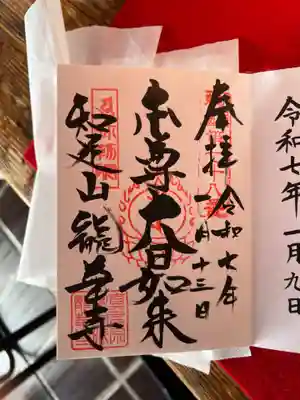 奉拝
令和七年
一月十三日
本尊大日如来
知足山龍華寺
令和七年一月九日